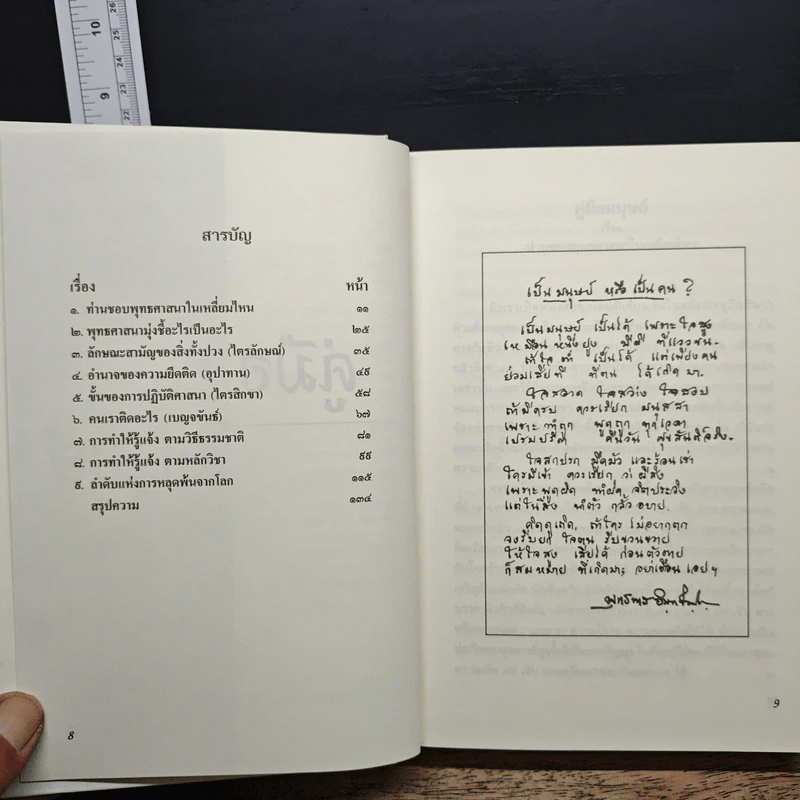 สารบัญ
เรื่อง หน้า
๑. ท่านชอบพุทธศาสนาในเหลี่ยมไหน ๑๑
๒. พุทธศาสนามุ่งชี้อะไรเป็นอะไร ๒๕
๓. ลักษณะสามัญของสิ่งทั้งปวง (ไตรลักษณ์) ๓๕
๔. อำนาจของความยึดติด (อุปาทาน) ๔๙
๕. ขั้นของการปฏิบัติศาสนา (ไตรสิกขา) ๕๘
๖. คนเราติดอะไร (เบญจขันธ์) ๖๗
๗. การทำให้รู้แจ้ง ตามวิธีธรรมชาติ ๘๑
๘. การทำให้รู้แจ้ง ตามหลักวิชา ๙๙
๙. ลำดับแห่งการหลุดพ้นจากโลก ๑๑๕
สรุปความ ๑๓๔
8
เป็นมนุษย์ หรือเป็นคน ?
เป็นมนุษย์ เป็นได้ เพราะใจสูง
เหมือนหนึ่งยูง มีดี ที่แววขน
ถ้าใจต่ำ เป็นได้ แต่เพียงคน
ย่อมเสียที ที่ตน ได้เกิดมา.
ใจสอาด ใจสว่าง ใจสงบ
ถ้ามีครบ ควรเรียก มนุสสา
เพราะทำถูก พูดถูก ทุกเวลา
เปรมปรีดา คืนวัน สุขสันต์จริง.
ใจสกปรก มืดมัว และร้อนเร่า
ใครมีเข้า ควรเรียก ว่าผีสิง
เพราะพูดผิด ทำผิด จิตประวิง
แต่ในสิ่ง ทำตัว กลั้วอบาย.
คิดดูเถิด, ถ้าใคร ไม่อยากตก
จงรีบยก ใจตน รีบขวนขวาย
ให้ใจสูง เสียได้ ก่อนตัวตาย
ก็สมหมาย ที่เกิดมา; อย่าเชือนเอยฯ
9
10
9
26
25
24
23
22